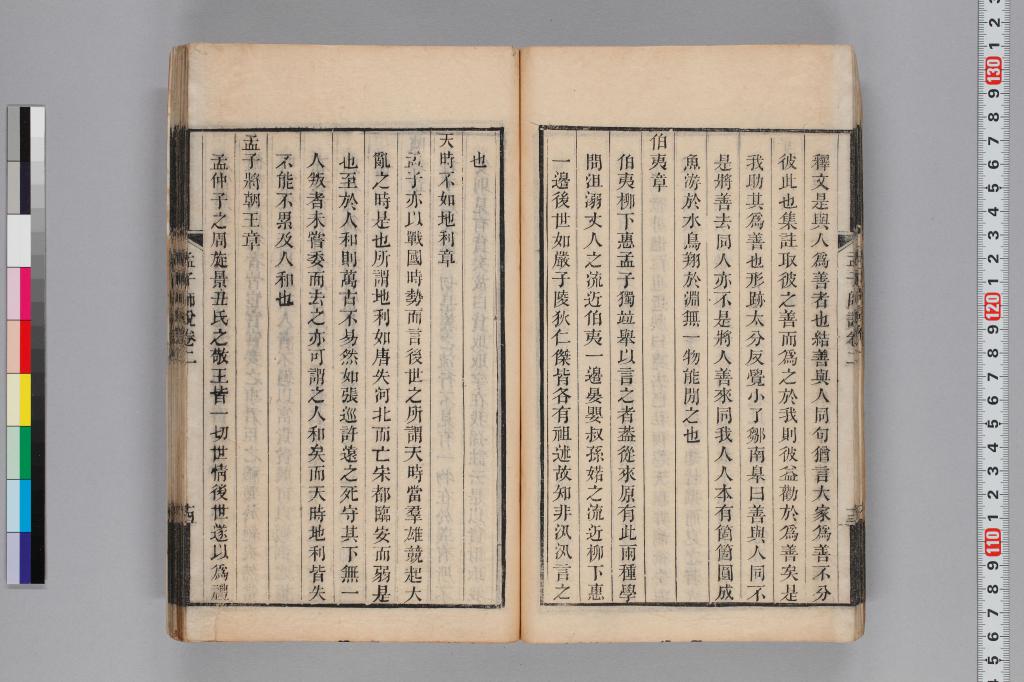 釋文是與人爲善者也結善與人同句猶言大家爲善不分
彼此也集註取彼之善而爲之於我則彼益勸於爲善矣是
我助其爲善也形跡太分反覺小了鄒南臯曰善與人同不
是將善去同人亦不是將人善來同我人人本有箇箇圓成
魚游於水鳥翔於淵無一物能閒之也
伯夷章
伯夷柳下惠孟子獨竝舉以言之者蓋從來原有此兩種學
問沮溺丈人之流近伯夷一邊晏嬰叔孫婼之流近柳下惠
一邊後世如嚴子陵狄仁傑皆各有祖述故知非汎汎言之
也
天時不如地利章
孟子亦以戰國時勢而言後世之所謂天時當羣雄競起大
亂之時是也所謂地利如唐失河北而亡宋都臨安而弱是
也至於人和則萬古不易然如張巡許遠之死守其下無一
人叛者未嘗委而去之亦可謂之人和矣而天時地利皆失
不能不累及人和也
孟子將朝王章
孟仲子之周旋景丑氏之敬王皆一切世情後世遂以爲禮
孟子師說卷二
十三
孟子師說卷二
十四
130
120
110